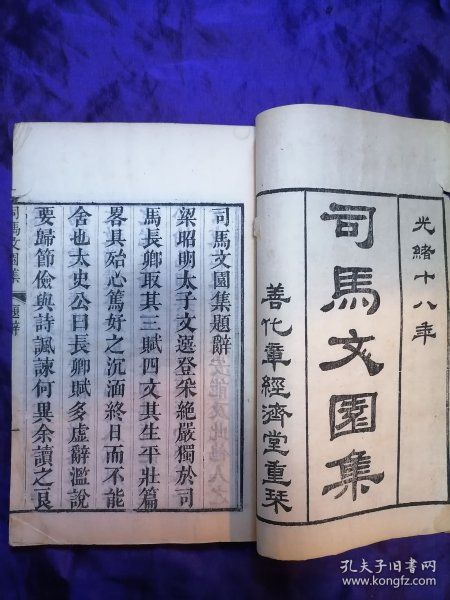 光緒十八年
司馬文園集
善化章經濟堂重栞
司馬文園集題辭
梁昭明太子文選登采絕嚴獨於司
馬長卿取其三賦四文其生平壯篇
畧具殆心篤好之沉湎終日而不能
舍也太史公曰長卿賦多虛辭濫說
要歸節儉與詩諷諫何異余讀之良
司馬文園集 題辭 一
孔夫子旧书网
www.kongfz.com